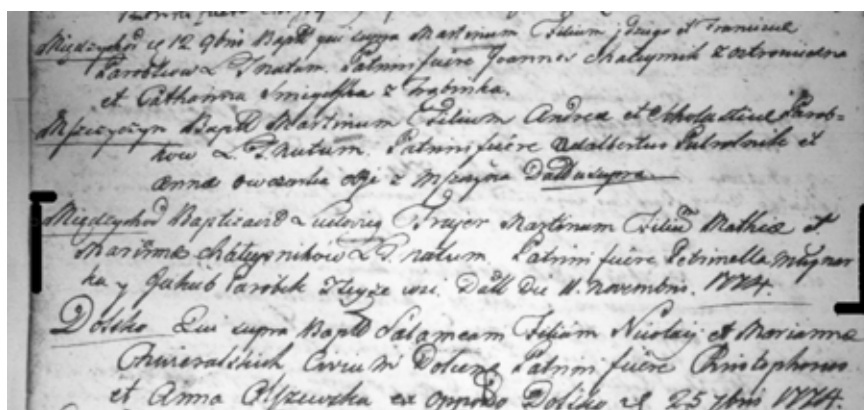 Międzychod d 12 9bris Bapt. qui supra Martinum Filium idzego et Franciscae
Parobkow L. T. natum. Patrini fuere Joannes Chałupnik z ostrowieczna
et Catharina Smigelska z
Mszczyczyn Bapt. Martinum Filium Andrea et Scholasticae Parob-
kow L. T. natum. Patrini fuere Adalbertus Pułrolnik et
Anna owczarka z Mszczyczyna Datt ut supra
Międzychod Baptisavit Ludovicus Martinum Filium Mathiae et
Marianna chałupnikow L. T. natum. Patrini fuere Petrinella młynar
ka y Jakub Parobek teyze wsi. Datt Die 11. Novembris. 1774.
Dolsko Qui supra Bapt. Salomeam Filiam Nicolai et Marianna
Civium Patrini fuere Christophorus
et Anna ex oppido Dolsko d 25 9bris 1774.